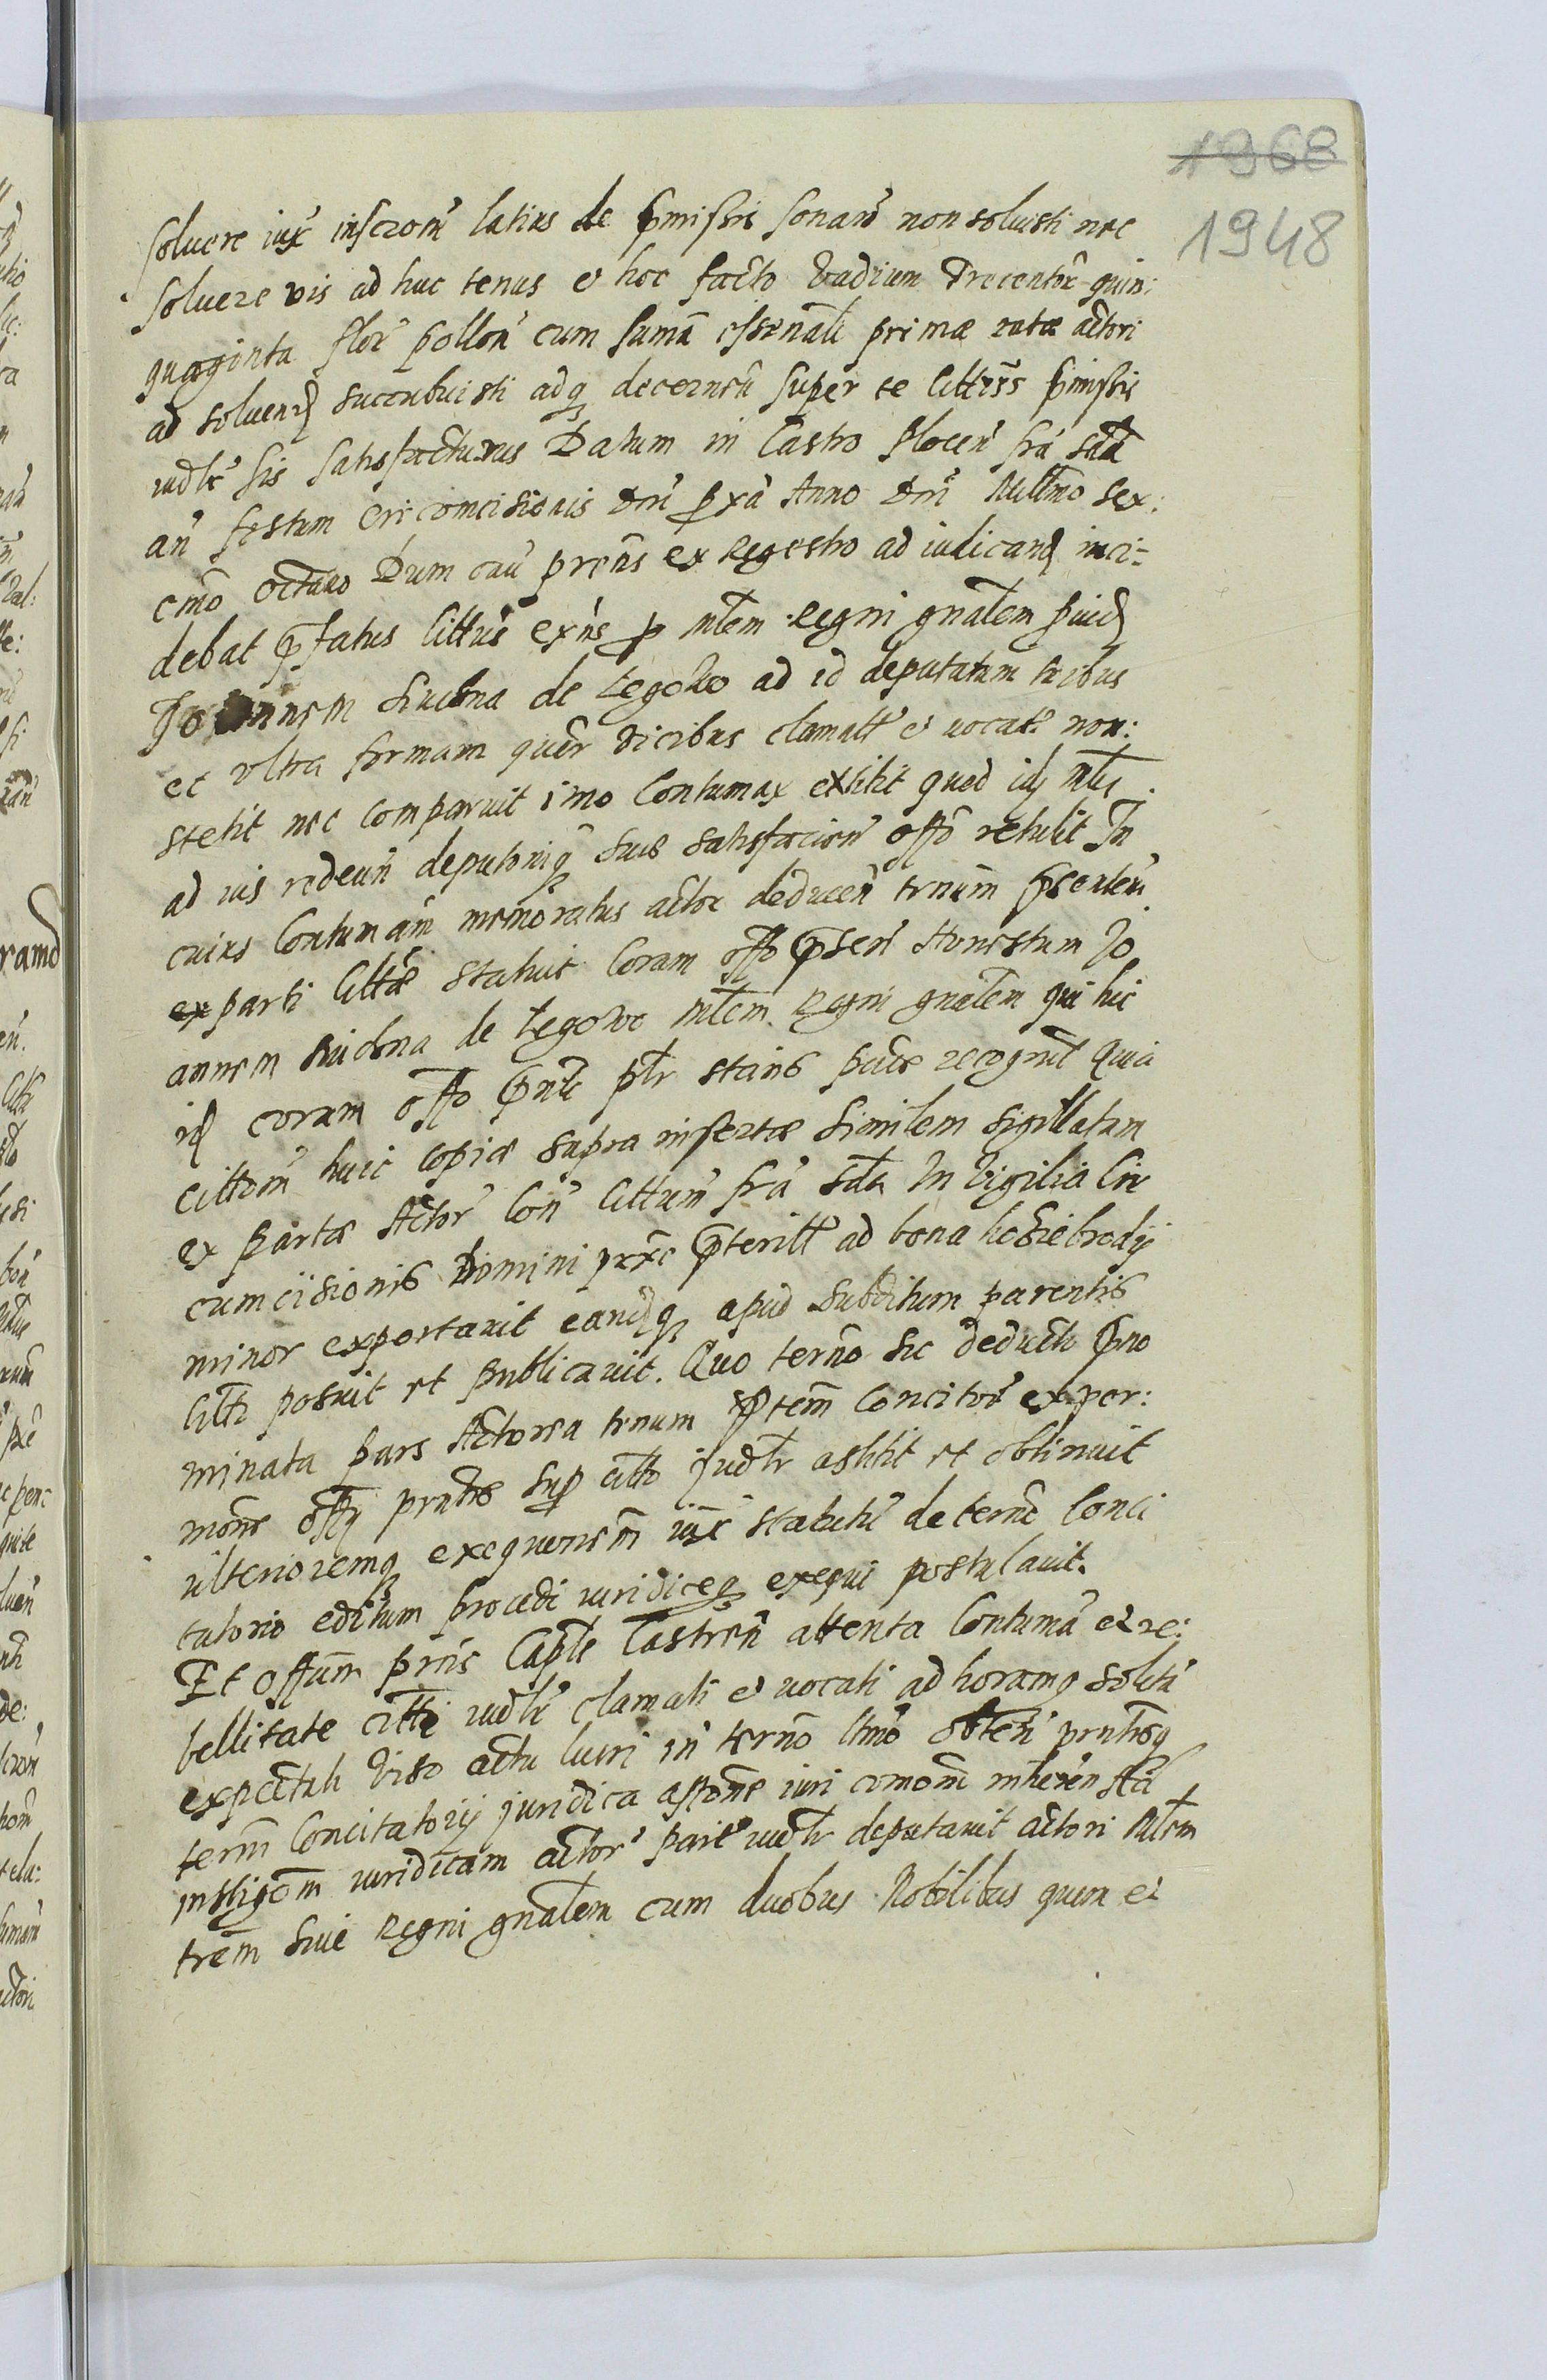 1968
1948
soluere iux̃ inscrõnẽ latius de p̃missis sonan̄ non soluisti nec
soluere vis ad huc tenus et hoc facto Vadium Trecentor̃ quin:
quaginta flor̃ pollon̄ cum summa essenãli primæ ratæ actori
ad soluend succubuisti adq decernen̄ super te Cittris p̃missis
iudlr̃ sis satisfacturus Datum in Castro Plocen̄ fr̃a sãda
an̄ festum Circumcisionis Dni p̃xa Anno Dni Millmo sex:
cmõ octauo Dum cau̇ prēns ex Regestro ad iudicand inci-
debat p̃fatus Cittus exñs p Mlem Regni gnalem prouid
Joannem de Legowo ad id deputatum tribus
et vltra formam quer̃ vicibus clamatt et uocat non:
stetit nec comparuit imo Contumax extitit quod id Mlis
ad ius redeun̄ deputoniq suæ satisfacien̄ offo retulit In
cuius Contumam̃ memoratus actor deducen̄ trnum p̃senten̄
ex parti Cittæ statuit Coram offo p̃sen̄ Honestum Jo
annem de Legowo Mlem Regni gnalem qui hic
id coram offo p̃nti plr stans palæ recognit Quia
cittom̃ huic Copiæ supra insertæ similem sigillatam
ex partæ Actor̃ Con̄ Cittum̃ fr̃a sda In Vigilia Cir
cumcisionis Domini p̃xæ p̃teritt ad bona
minor exportauit eandq apud subditum parentis
Citti posuit et publicauit. Quo terno sic deducto p̃no
minata pars Actorea trnum ptem Concitor̃ ex per:
mone offi pntis sup citto judlr astitit et obtinuit
ulterioremq exequenem iux̃ statutũ de terno Conci
tatorio editum procedi iuridiceq exequi postulauit.
Et offum p̃ns Caple Castren̄ attenta Contuma et re:
bellitate citti iudlr̃ clamati et uocati ad horamq solitã
expectati Viso actu lucri in terno obten̄ pntisq
termi Concitatorij juridica iuri comoni inheren̄ Ad
instigom̃ iuridicam actor̃ part iudlr deputauit actori Mlem
trem siue Regni gnalem cum duobus Nobilibus quem et